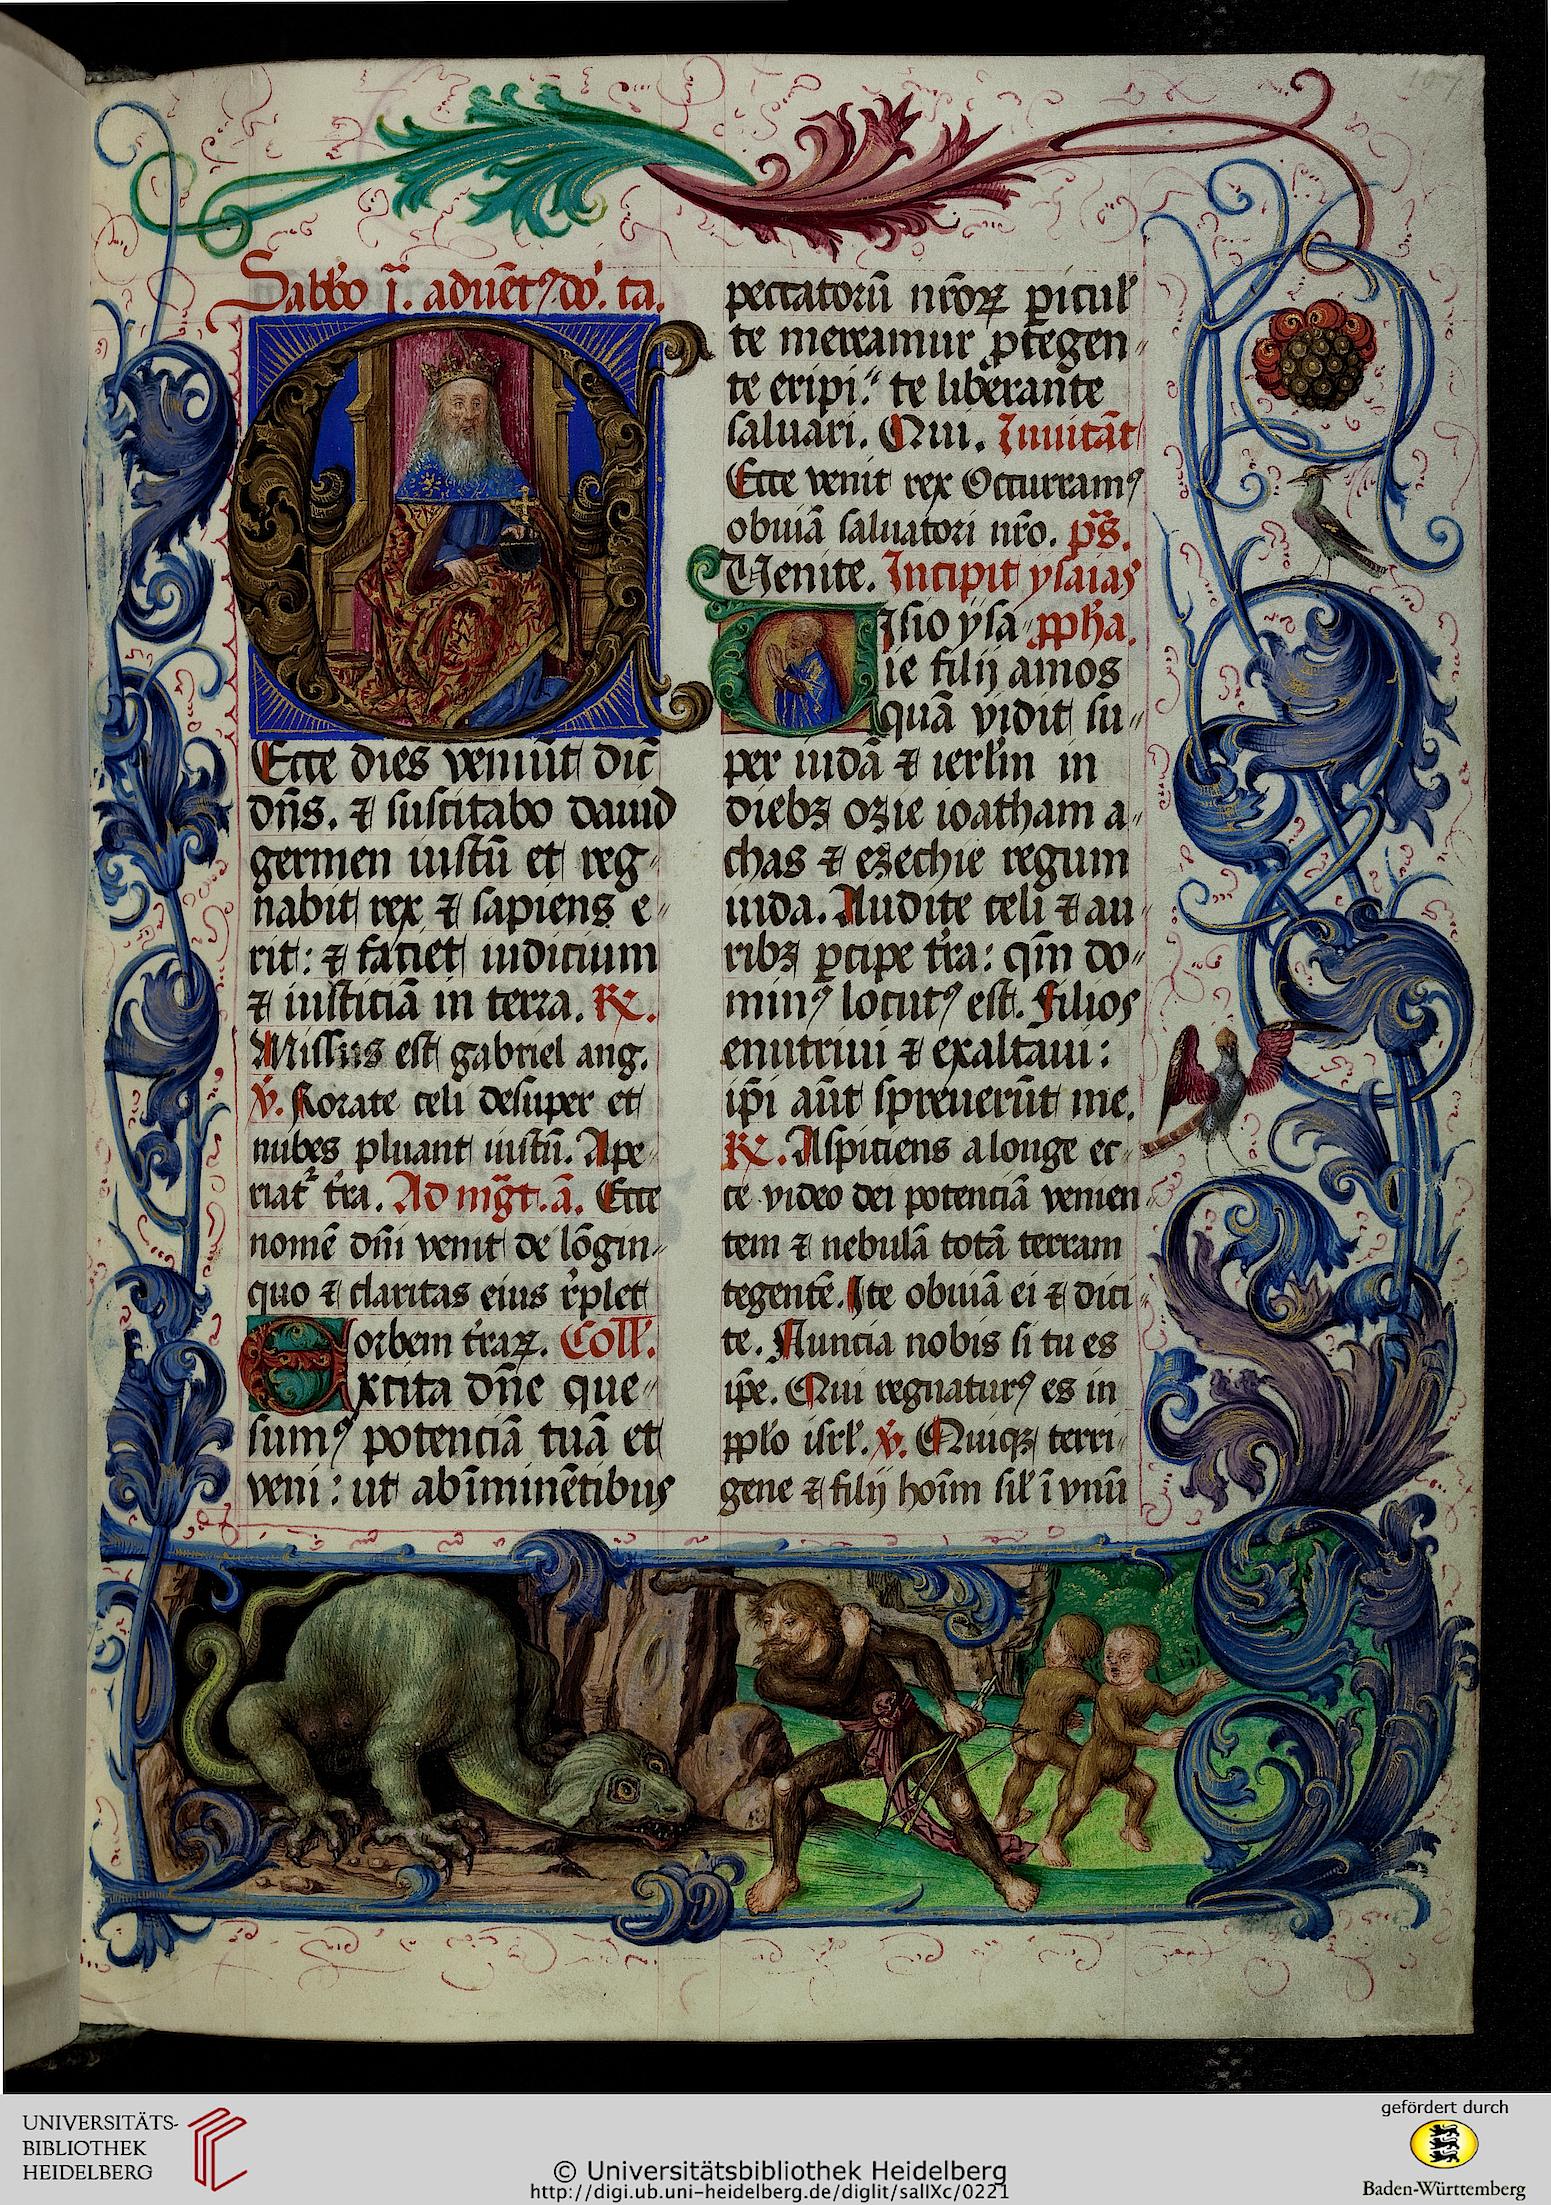 Sabb'o j. aduēt9 do'. ca.
Ecce dies veniūt dic̄
dn̄s. ⁊ suscitabo dauid
germen iustū et reg〃
nabit rex ⁊ sapiens e〃
rit: ⁊ faciet iudicium
⁊ iusticiā in terra. R̷.
Missus est gabriel ang.
v̷. Rorate celi desuper et
nubes pluant iustū. Ape〃
riat᷑ t'ra. Ad mg̅t. a̅. Ecce
nomē dn̄i venit de lōgin〃
quo ⁊ claritas eius r'plet
orbem t'raꝝ. Coll'.
Excita dn̄e que〃
sumꝯ potenciā tuā et
veni: ut ab īminētibus
peccatorū nr̄oꝝ ꝑicul'
te mereamur ꝓtegen〃
te eripi: te liberante
saluari. Qui. Inuitāt
Ecce venit rex Occurramꝯ
obuiā saluatori nr̄o. p̄s.
Uenite. Incipit ysaias
Visio ysa〃 ꝓpha.
ie filij amos
quā vidit su〃
per iudā ⁊ ierl̄m in
diebꝫ ozie ioatham a〃
chas ⁊ ezechie regum
iuda. Audite celi ⁊ au〃
ribꝫ ꝑcipe t'ra: qm̄ do〃
minꝯ locutꝯ est. Filios
enutriui ⁊ exaltaui:
ip̄i aūt spreuerūt me.
R̷. Aspiciens a longe ec〃
ce video dei potenciā venien
tem ⁊ nebulā totā terram
tegentē. Ite obuiā ei ⁊ dici〃
te. Nuncia nobis si tu es
ip̄e. Qui regnaturꝯ es in
pp̄lo isrl'. v̷. Quiqꝫ terri〃
gene ⁊ filij hoīm sil' ī vnū
UNIVERSITÄTS-
BIBLIOTHEK
HEIDELBERG
© Universitätsbibliothek Heidelberg
http://digi.ub.uni-heidelberg.de/diglit/salIXc/0221
gefördert durch
Baden-Württemberg